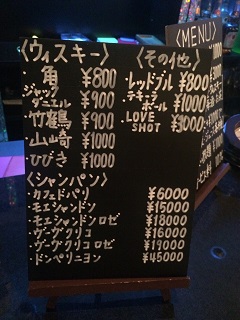 〈ウィスキー〉
・角 ¥800
・ジャックダニエル ¥900
・竹鶴 ¥900
・山崎 ¥1000
・ひびき ¥1000
〈その他〉
・レッドブル ¥800
・テキーラボール ¥1000
・LOVE SHOT ¥3000
〈シャンパン〉
・カフェドパリ ¥6000
・モエシャンドン ¥15000
・モエシャンドンロゼ ¥18000
・ヴーヴクリコ ¥16000
・ヴーヴクリコロゼ ¥19000
・ドンペリニヨン ¥45000
〈MENU〉